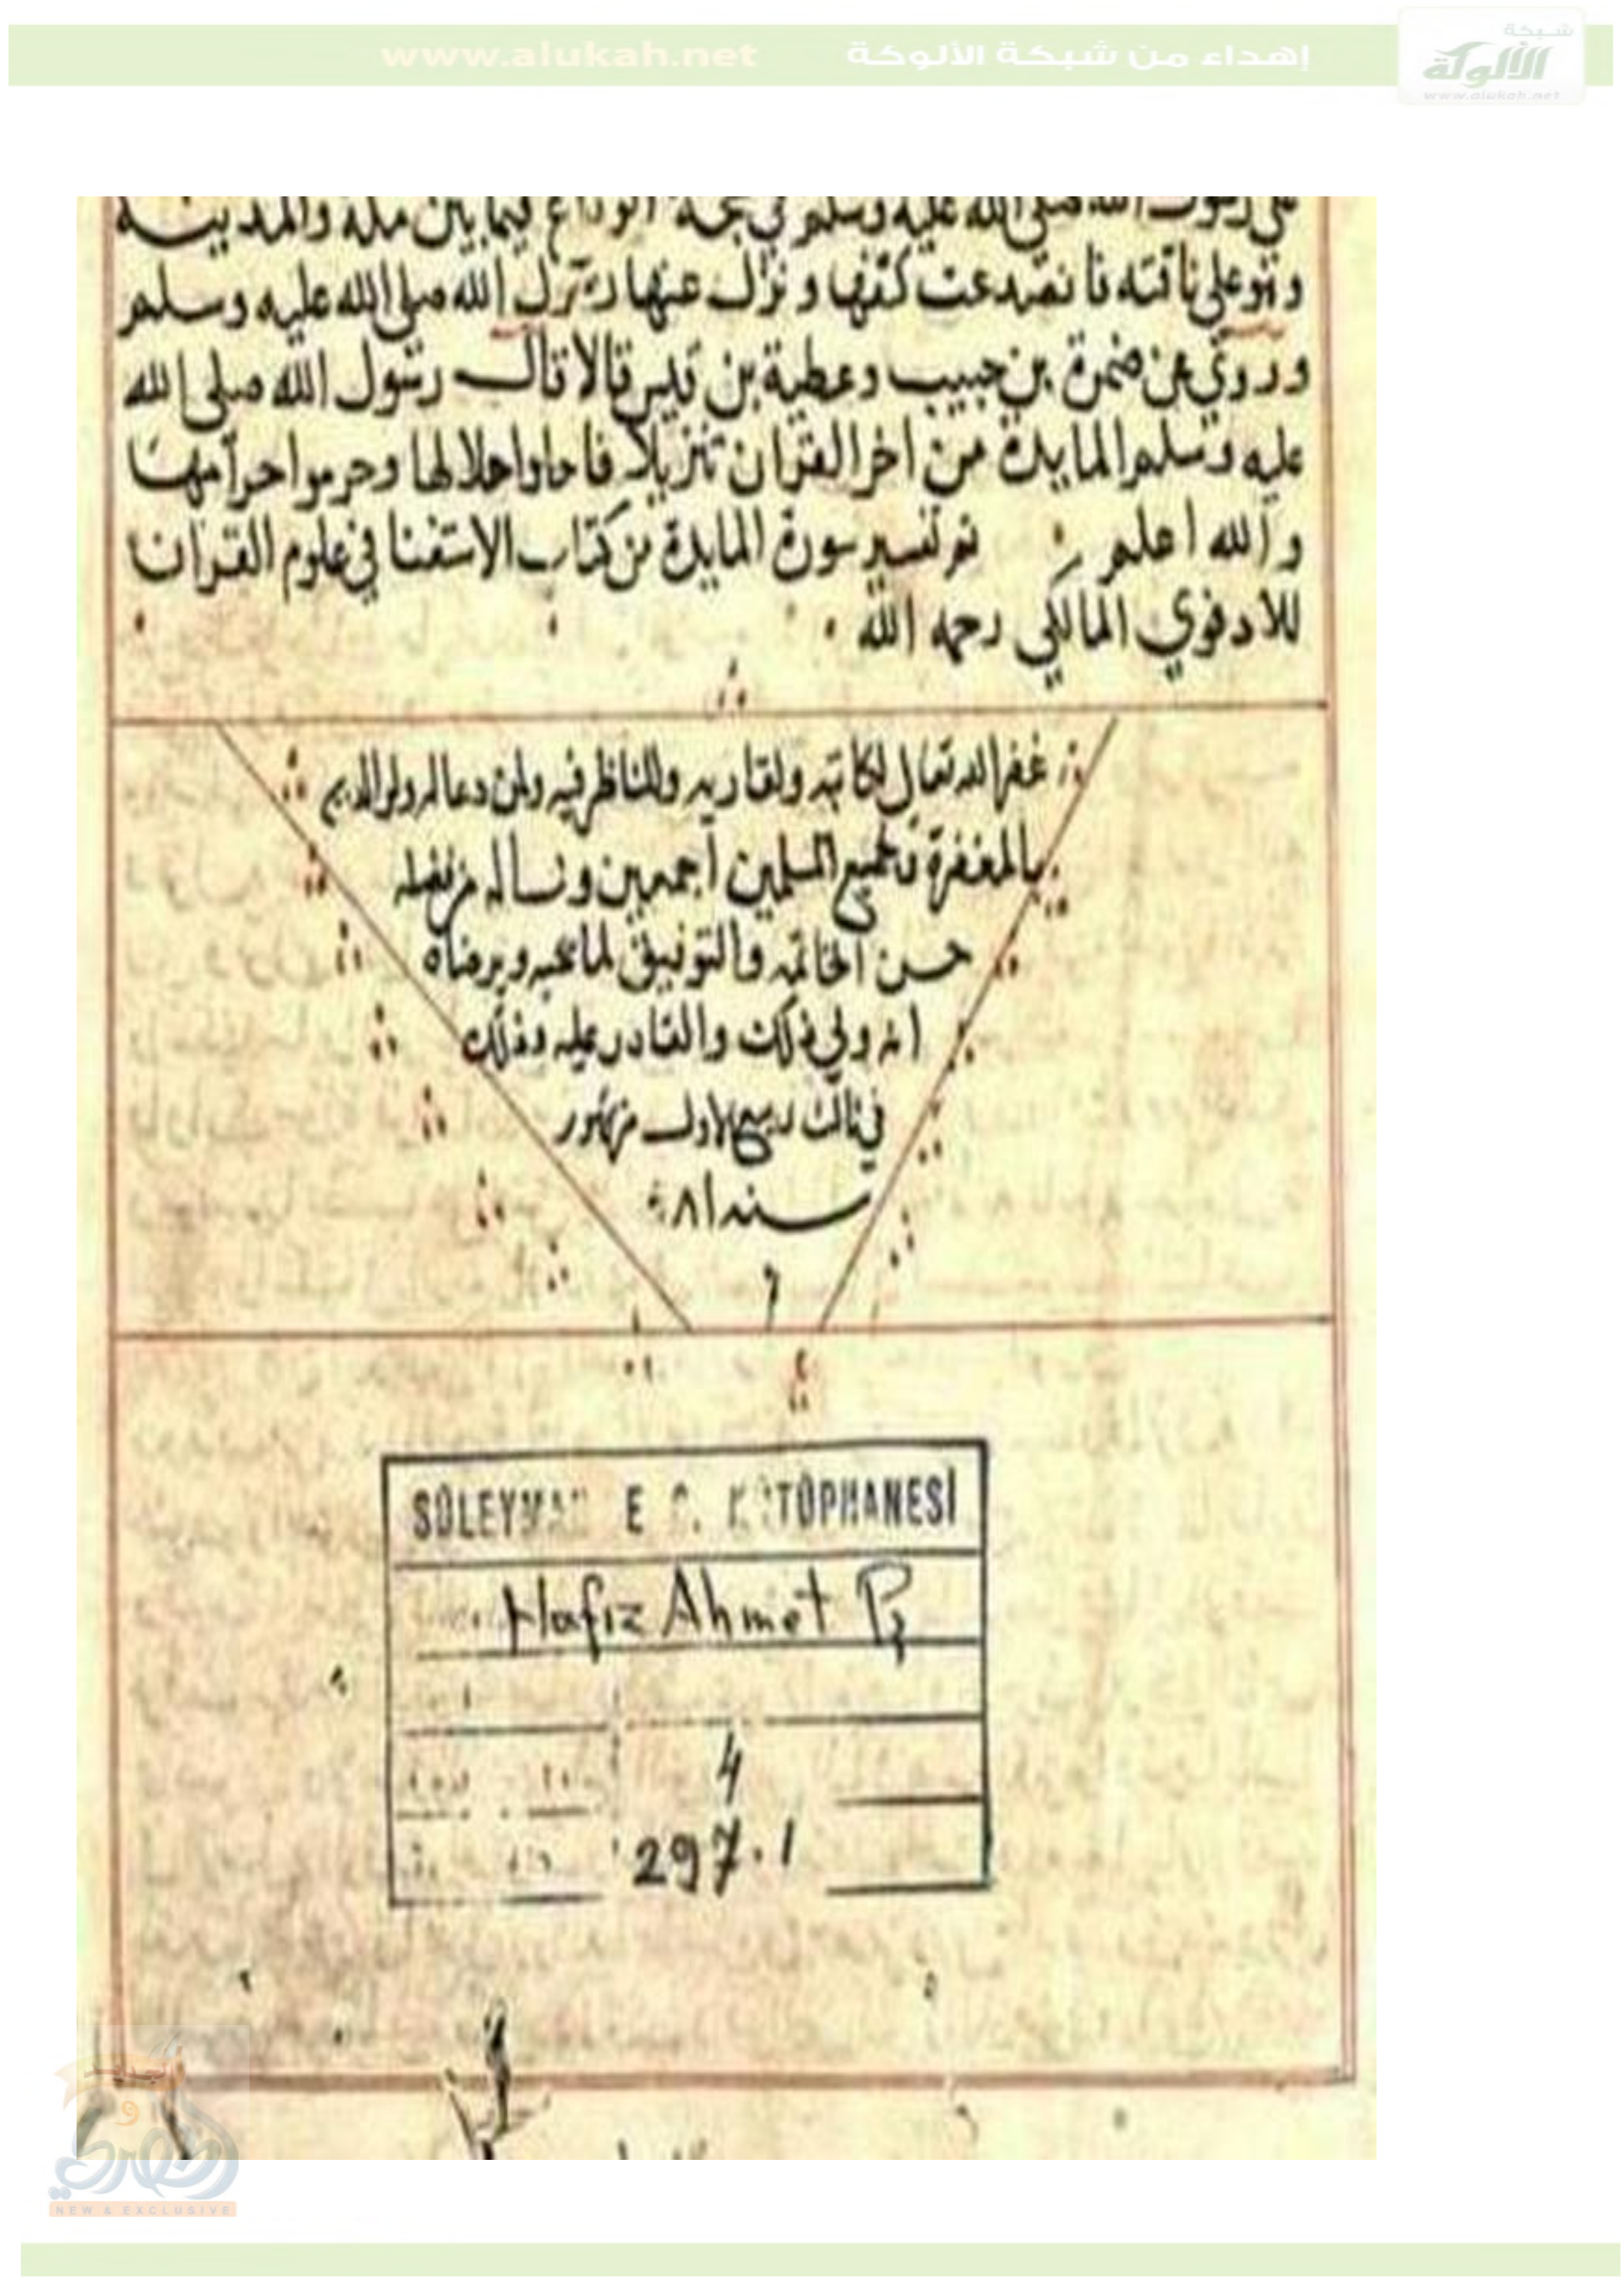 إهداء من شبكة الألوكة www.alukah.net
شبكة
الألوكة
www.alukah.net
صلى الله عليه وسلم في حجة الوداع فيما بين مكة والمدينة
وهو على ناقته فانصدعت كتفها ونزل عنها رسول الله صلى الله عليه وسلم
وروي عن ضمرة بن حبيب وعطية بن قيس قالا قال رسول الله صلى الله
عليه وسلم المايدة من اخر القران تنزيلا فاحلوا حلالها وحرموا حرامها
والله اعلم تم تفسير سورة المايدة من كتاب الاستغنا في علوم القران
للادفوي المالكي رحمه الله
غفر الله تعالى لكاتبه ولقاريه وللناظر فيه ولمن دعا لهم ولوالديهم
بالمغفرة ولجميع المسلمين اجمعين ونساله من فضله
حسن الخاتمه والتوفيق لما يحبه ويرضاه
انه ولي ذلك والقادر عليه وذلك
في ثالث ربيع الاول من شهور
سنه
SÜLEYMAN E KÜTÜPHANESİ
Hafız Ahmet Pş
4
297.1
NEW & EXCLUSIVE